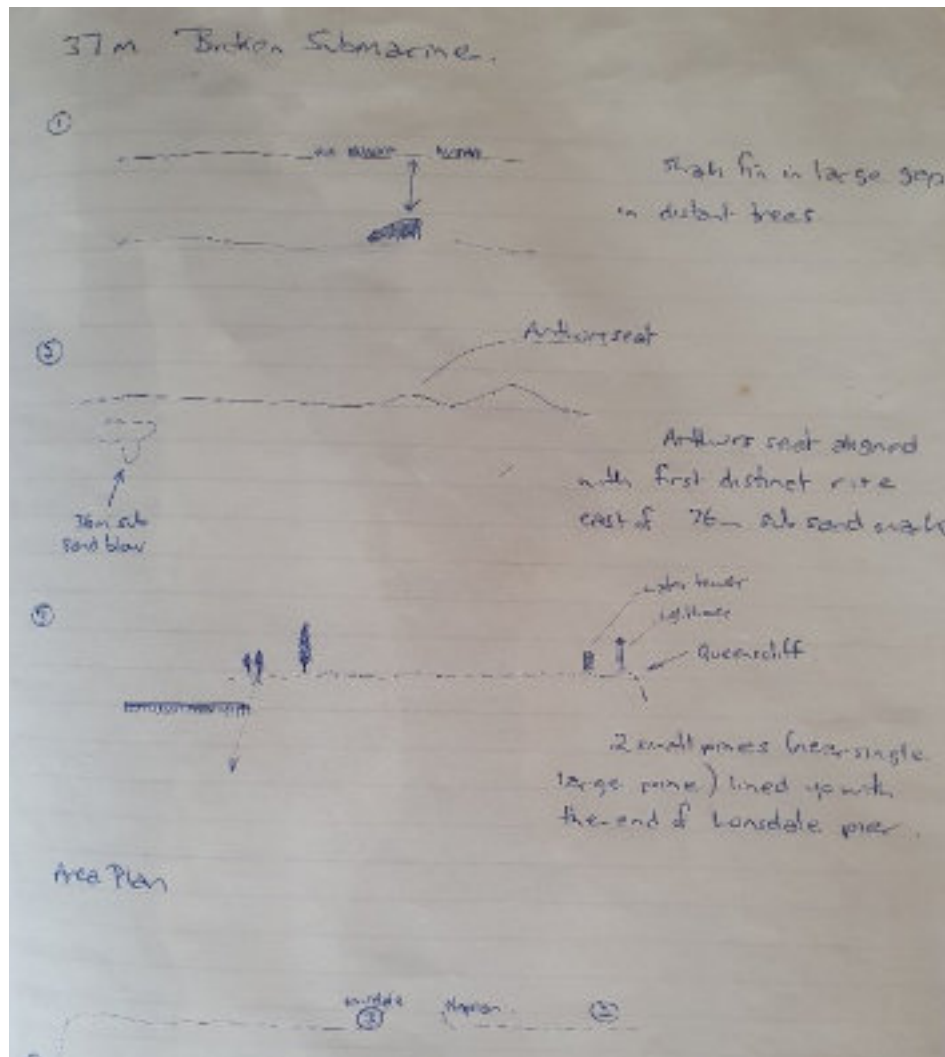 37m Broken Submarine.
①
Shark fin in large gap
in distant trees
Arthurs seat
Arthurs seat aligned
with first distinct rise
east of 26m sub sand mark
26m sub
sand blow
water tower
Lighthouse
Queenscliff
2 small pines (near single
large pine) lined up with
the end of Lonsdale pier.
Area Plan
Lonsdale
Nepean